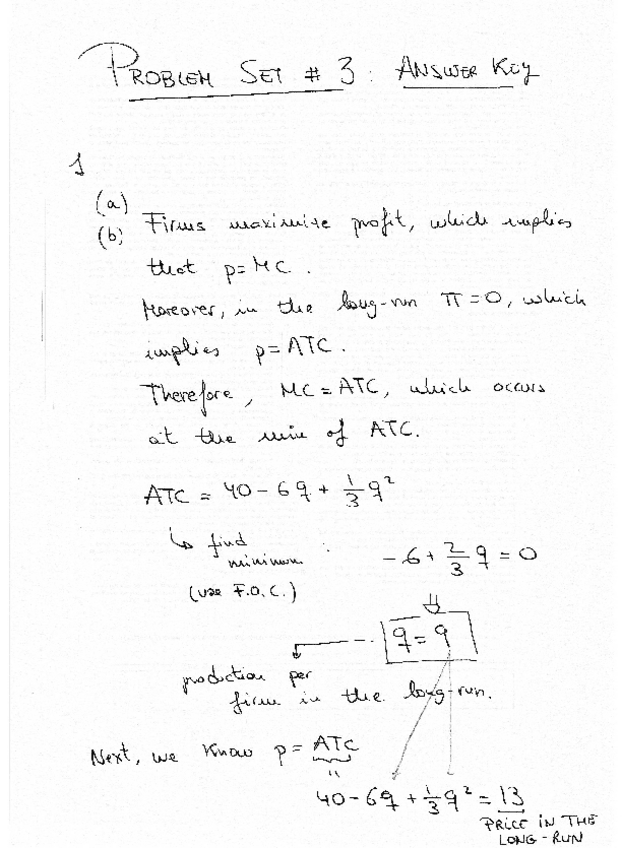 PROBLEM SET # 3 : ANSWER KEY
1
(a)
(b) Firms maximise profit, which implies
that p=MC.
Moreover, in the long-run π=0, which
implies p=ATC.
Therefore, MC=ATC, which occurs
at the min of ATC.
ATC = 40-6q+1/3 q²
↳ find
minimum :
(use F.O.C.)
-6+2/3 q=0
⇓
q=9
production per
firm in the long-run.
Next, we know p=ATC
"
40-6q+1/3 q²=13
PRICE IN THE
LONG-RUN